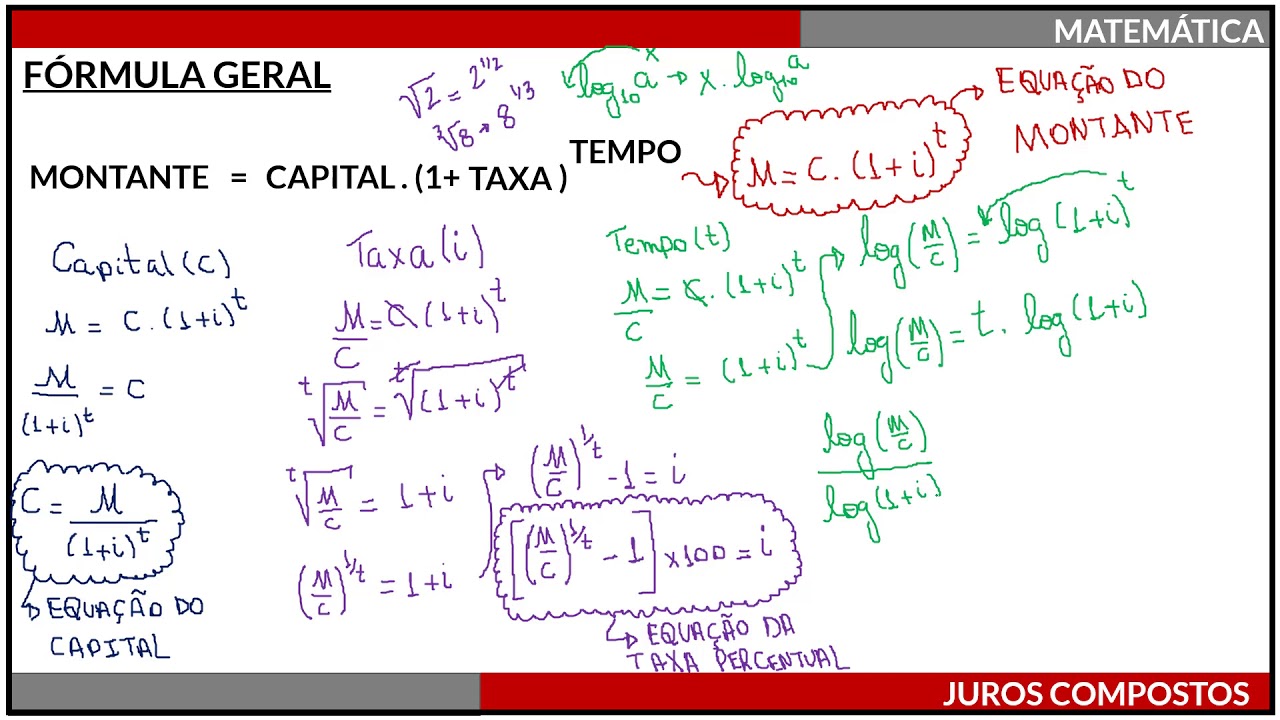 MATEMÁTICA
FÓRMULA GERAL
√2 = 2^1/2
∛8 → 8^1/3
log₁₀ a^x → x . log₁₀ a
MONTANTE = CAPITAL . (1+ TAXA ) TEMPO
M = C . (1+i)^t
EQUAÇÃO DO
MONTANTE
Capital (C)
M = C . (1+i)^t
M/(1+i)^t = C
C = M/(1+i)^t
EQUAÇÃO DO
CAPITAL
Taxa (i)
M/C = C (1+i)^t
ᵗ√(M/C) = ᵗ√(1+i)^t
ᵗ√(M/C) = 1+i
(M/C)^1/t = 1+i
(M/C)^1/t - 1 = i
[(M/C)^1/t - 1] x100 = i
EQUAÇÃO DA
TAXA PERCENTUAL
Tempo (t)
M/C = C . (1+i)^t
M/C = (1+i)^t
log(M/C) = log(1+i)^t
log(M/C) = t . log(1+i)
log(M/C)
log(1+i)
JUROS COMPOSTOS